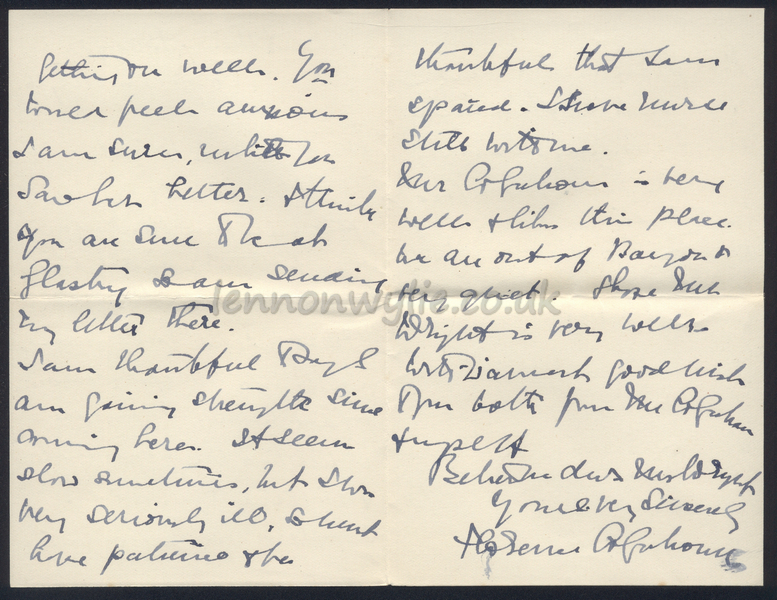 getting on well. You
would feel anxious
I am sure, until you
saw her better. I think
you are sure to be at
Glastry so am sending
my letter there.
I am thankful to say I
am gaining strength since
coming here. It seems
slow sometimes, but I was
very seriously ill, so must
have patience & be
thankful that I am
spared. I have Nurse
still with me.
Mr Colquhoun is very
well & likes this place.
We are out of Bangor &
very quiet. I hope Mr
Wright is very well.
With warmest good wishes
to you both from Mr Colquhoun
& myself
Believe me dear Mrs Wright
Yours very sincerely
Colquhoun
lennonwylie.co.uk